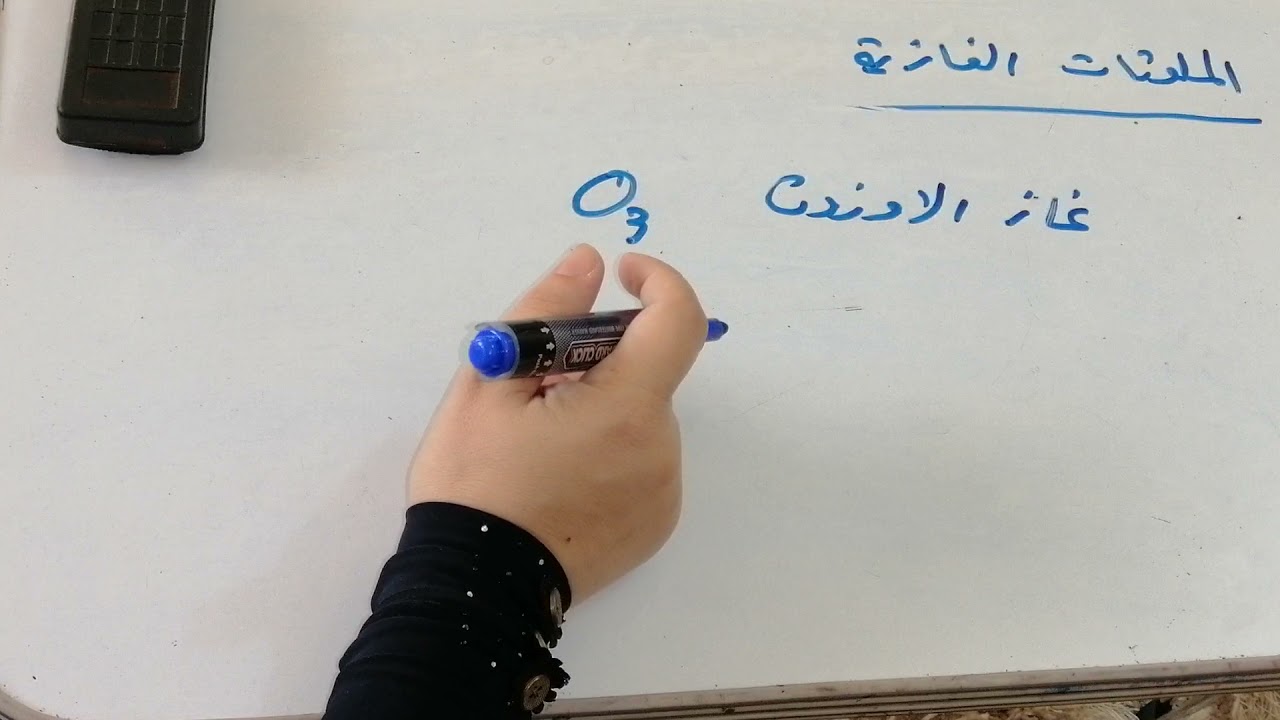 الملوثات الغازية
غاز الاوزون O₃